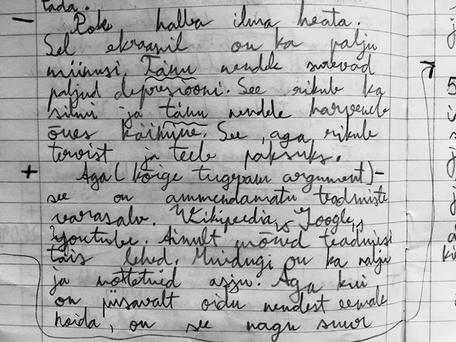 tada.
– Pole halba ilma heata.
Sel ekraanil on ka palju
miinusi. Tänu nendele surevad
paljud depresiooni. See rikub ka
silmi ja tänu nendele harveneb
õues käimine. See aga rikub
tervist ja teeb paksuks.
+ Aga (kõige tugevam argument) -
see on ammendamatu teadmiste
varasalv. Wikipeedia, Google,
Youtube. Ainult mõned teadmisi
täis lehed. Muidugi on ka palju
ja mõttetuid asju. Aga kui
on piisavalt oidu nendest eemale
hoida, on see nagu suur